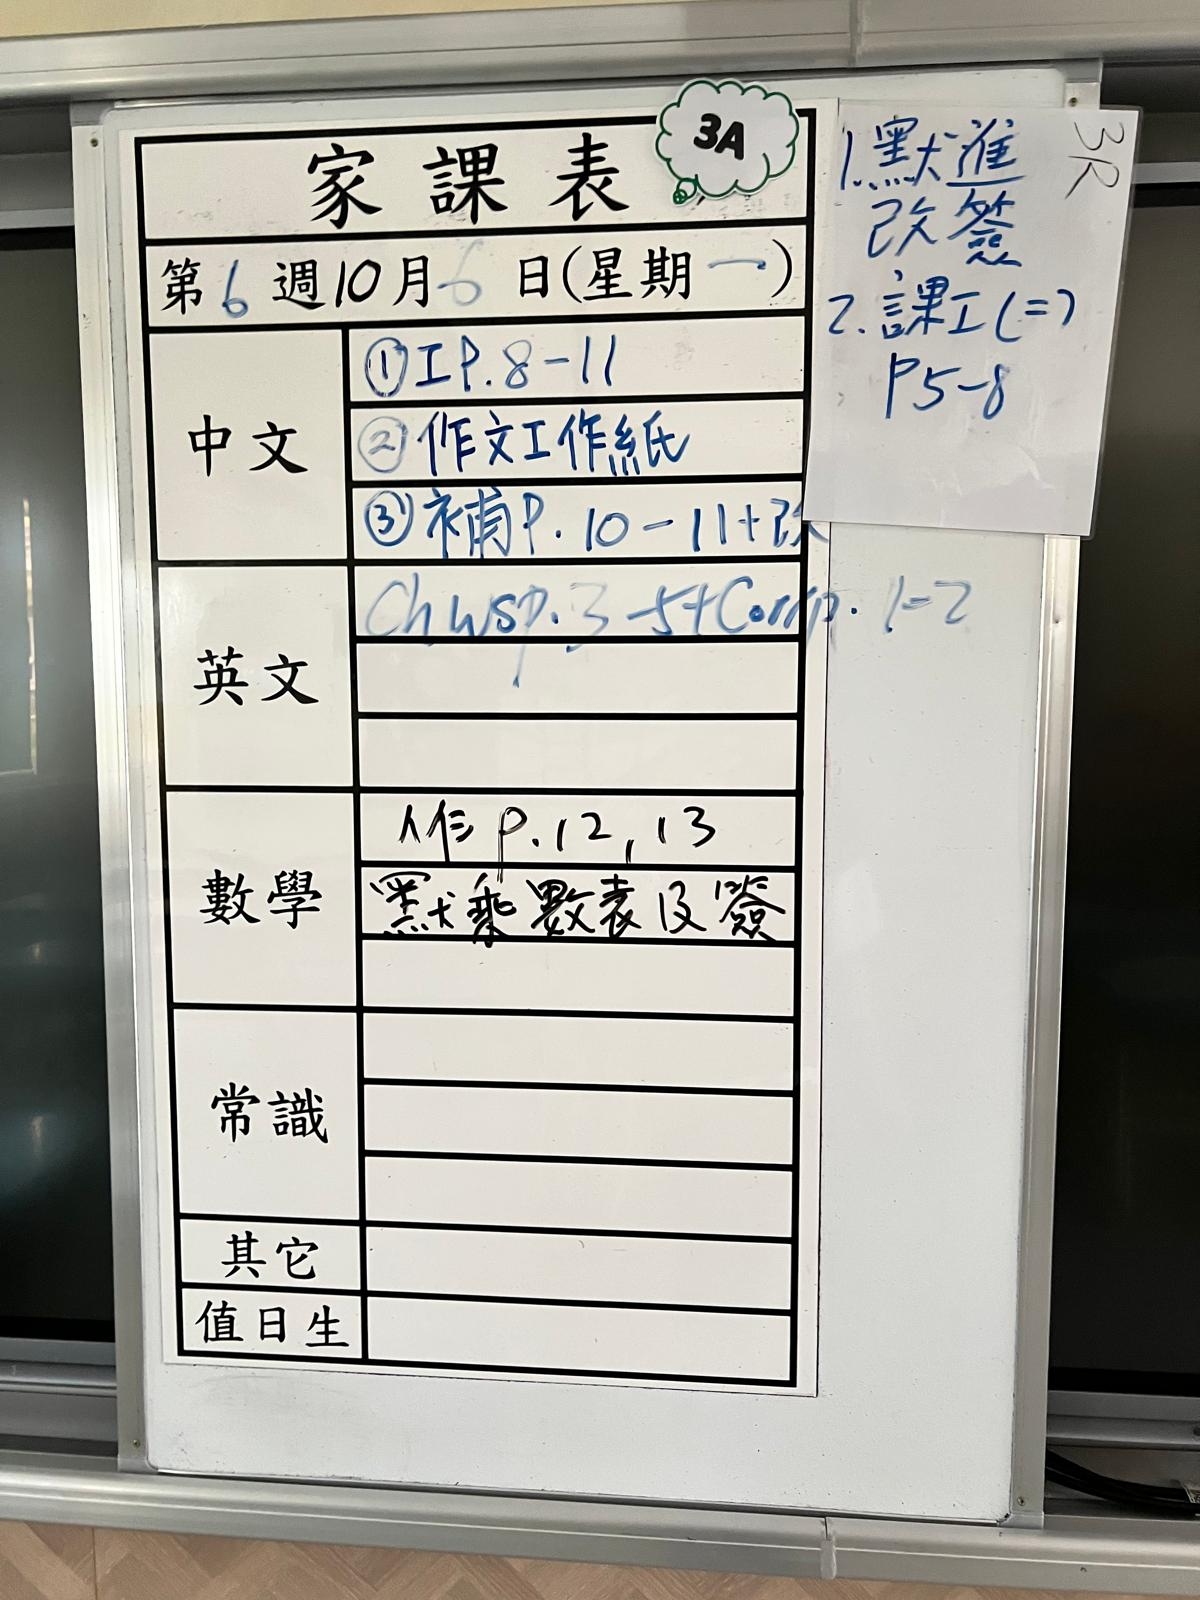 家課表
3A
第6週10月6日(星期一)
中文
①工P.8-11
②作文工作紙
③補P.10-11+改
英文
Ch wsp.3-5+Corr p.1-2
數學
作P.12,13
默乘數表及簽
常識
其它
值日生
3R
1.默進
改簽
2.課工(二)
P5-8